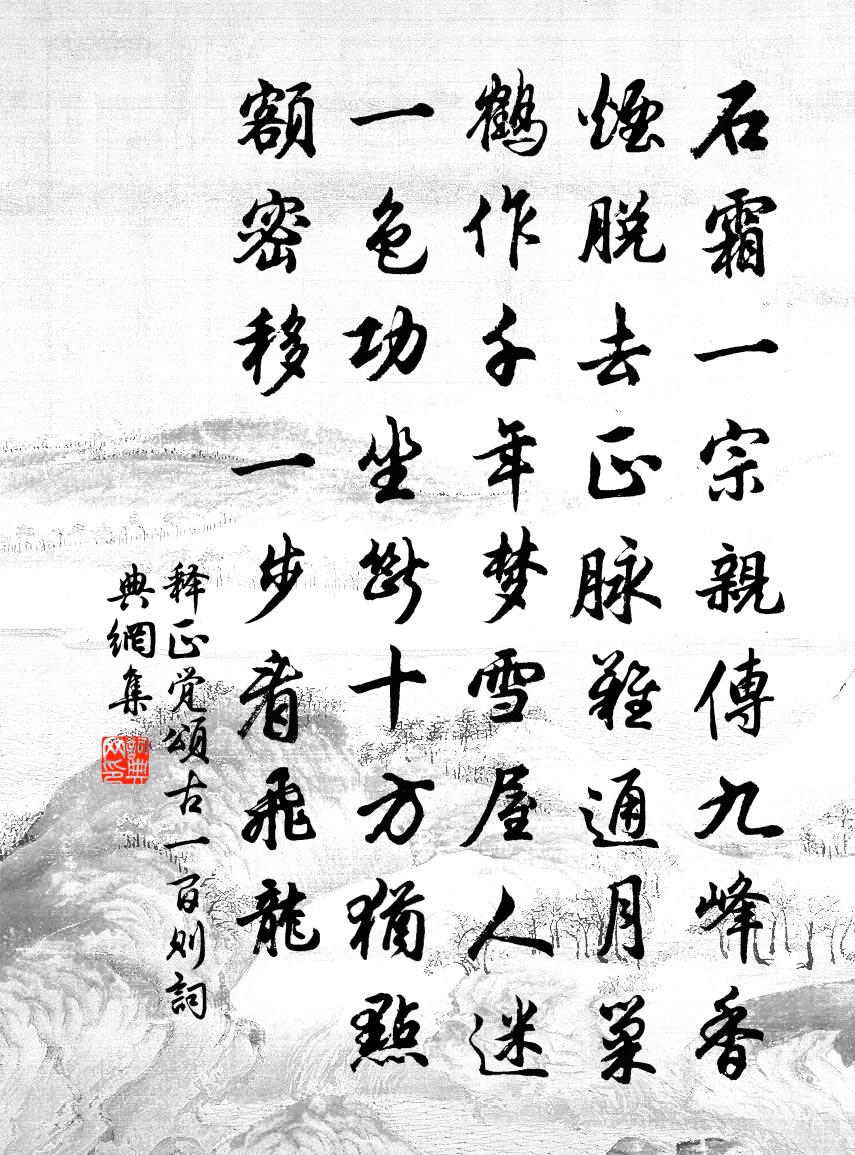 石霜一宗親傳九峰香
煙脫去正脉難通月巢
鶴作千年梦雪屋人迷
一色功坐斷十方猶點
額密移一步看飛龍
释正觉頌古一百则詞
典網集
詞典網印